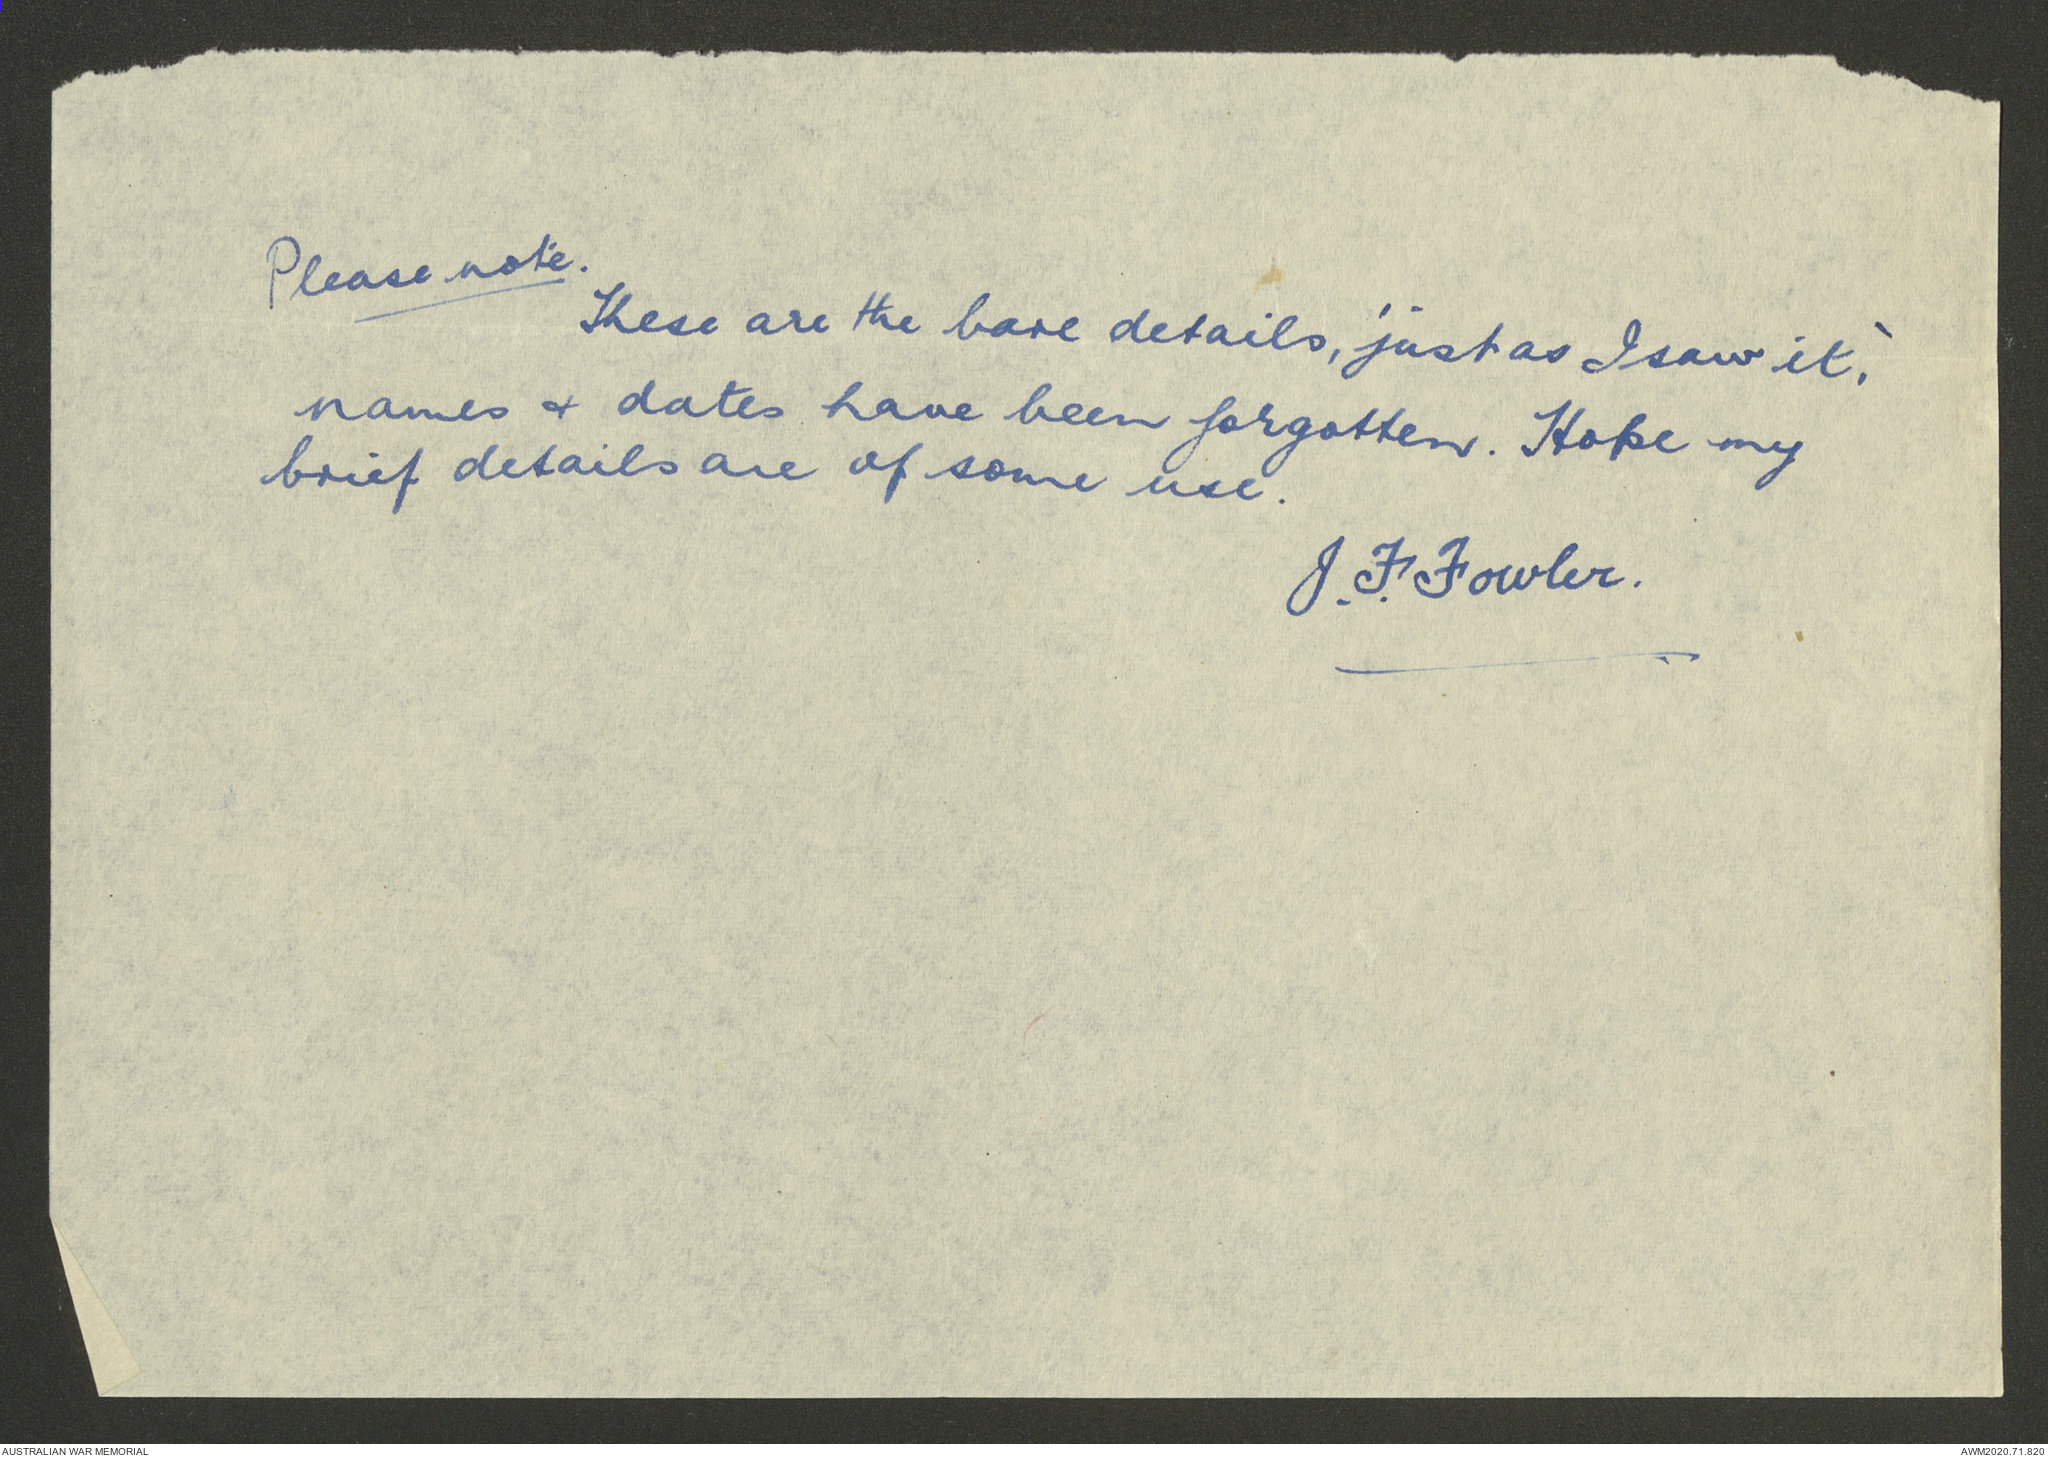 Please note.
These are the bare details, 'just as I saw it,'
names & dates have been forgotten. Hope my
brief details are of some use.
J. F. Fowler.
AUSTRALIAN WAR MEMORIAL
AWM2020.71.820